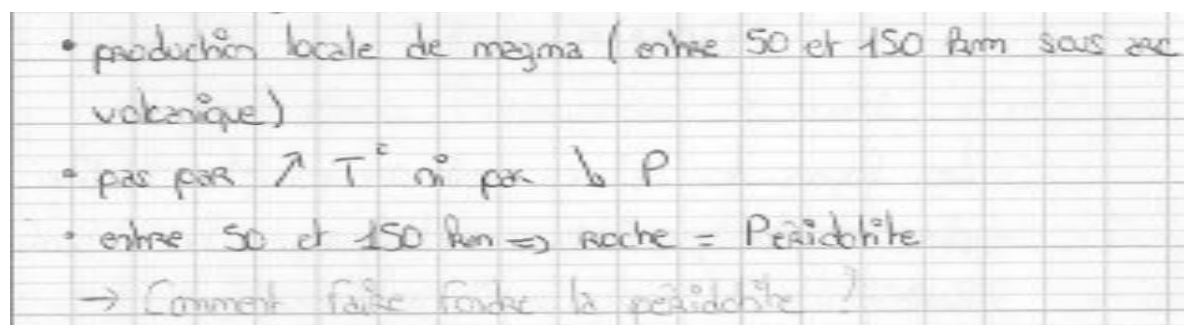 • production locale de magma (entre 50 et 150 km sous arc
volcanique)
• pas par ↗ T° ni par ↘ P
• entre 50 et 150 km => roche = Péridotite
→ Comment faire fondre la péridotite ?